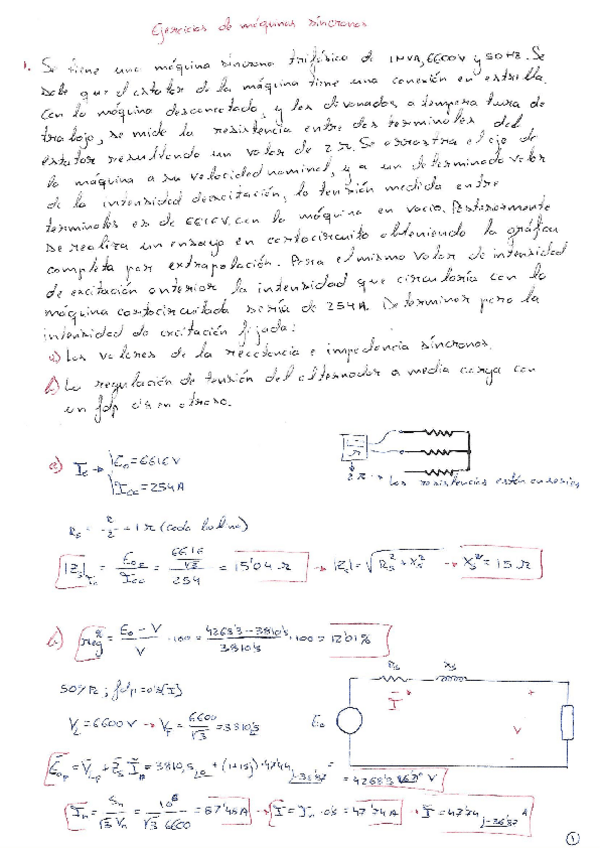 Ejercicios de máquinas síncronas
1. Se tiene una máquina síncrona trifásica de 1MVA, 6600V y 50Hz. Se
sabe que el estator de la máquina tiene una conexión en estrella.
Con la máquina desconectada, y los devanados a temperatura de
trabajo, se mide la resistencia entre dos terminales del
estator resultando un valor de 2Ω. Se arrastra el eje de
la máquina a su velocidad nominal, y a un determinado valor
de la intensidad de excitación, la tensión medida entre
terminales es de 6616V, con la máquina en vacío. Posteriormente
se realiza un ensayo en cortocircuito obteniendo la gráfica
completa por extrapolación. Para el mismo valor de intensidad
de excitación anterior la intensidad que circularía con la
máquina cortocircuitada sería de 254A. Determinar para la
intensidad de excitación fijada:
a) Los valores de la reactancia e impedancia síncronas.
b) La regulación de tensión del alternador a media carga con
un fdp en atraso.
a) Ie → E₀ = 6616V
Icc = 254A
2Ω → Las resistencias están en serie
Rs = 2/2 = 1Ω (cada bobina)
|Zs|Ie = E₀F/Icc = (6616/√3)/254 = 15'04Ω → |Zs| = √(Rs² + Xs²) → Xs = 15Ω
b) reg% = (E₀ - V)/V · 100 = (4268'3 - 3810'5)/3810'5 · 100 = 12'01%
Rs Xs
50% ; fdp = 0'8(I)
VL = 6600V → VF = 6600/√3 = 3810'5
E₀ I V
E₀F = VF + Zs In = 3810,5∠0 + (1+15j)·47'74 = 4268'3 V
In = Sn/(√3 Vn) = 10⁶/(√3 6600) = 87'48A → I = In · 0'5 = 47'74A → I = 47'74 A
1